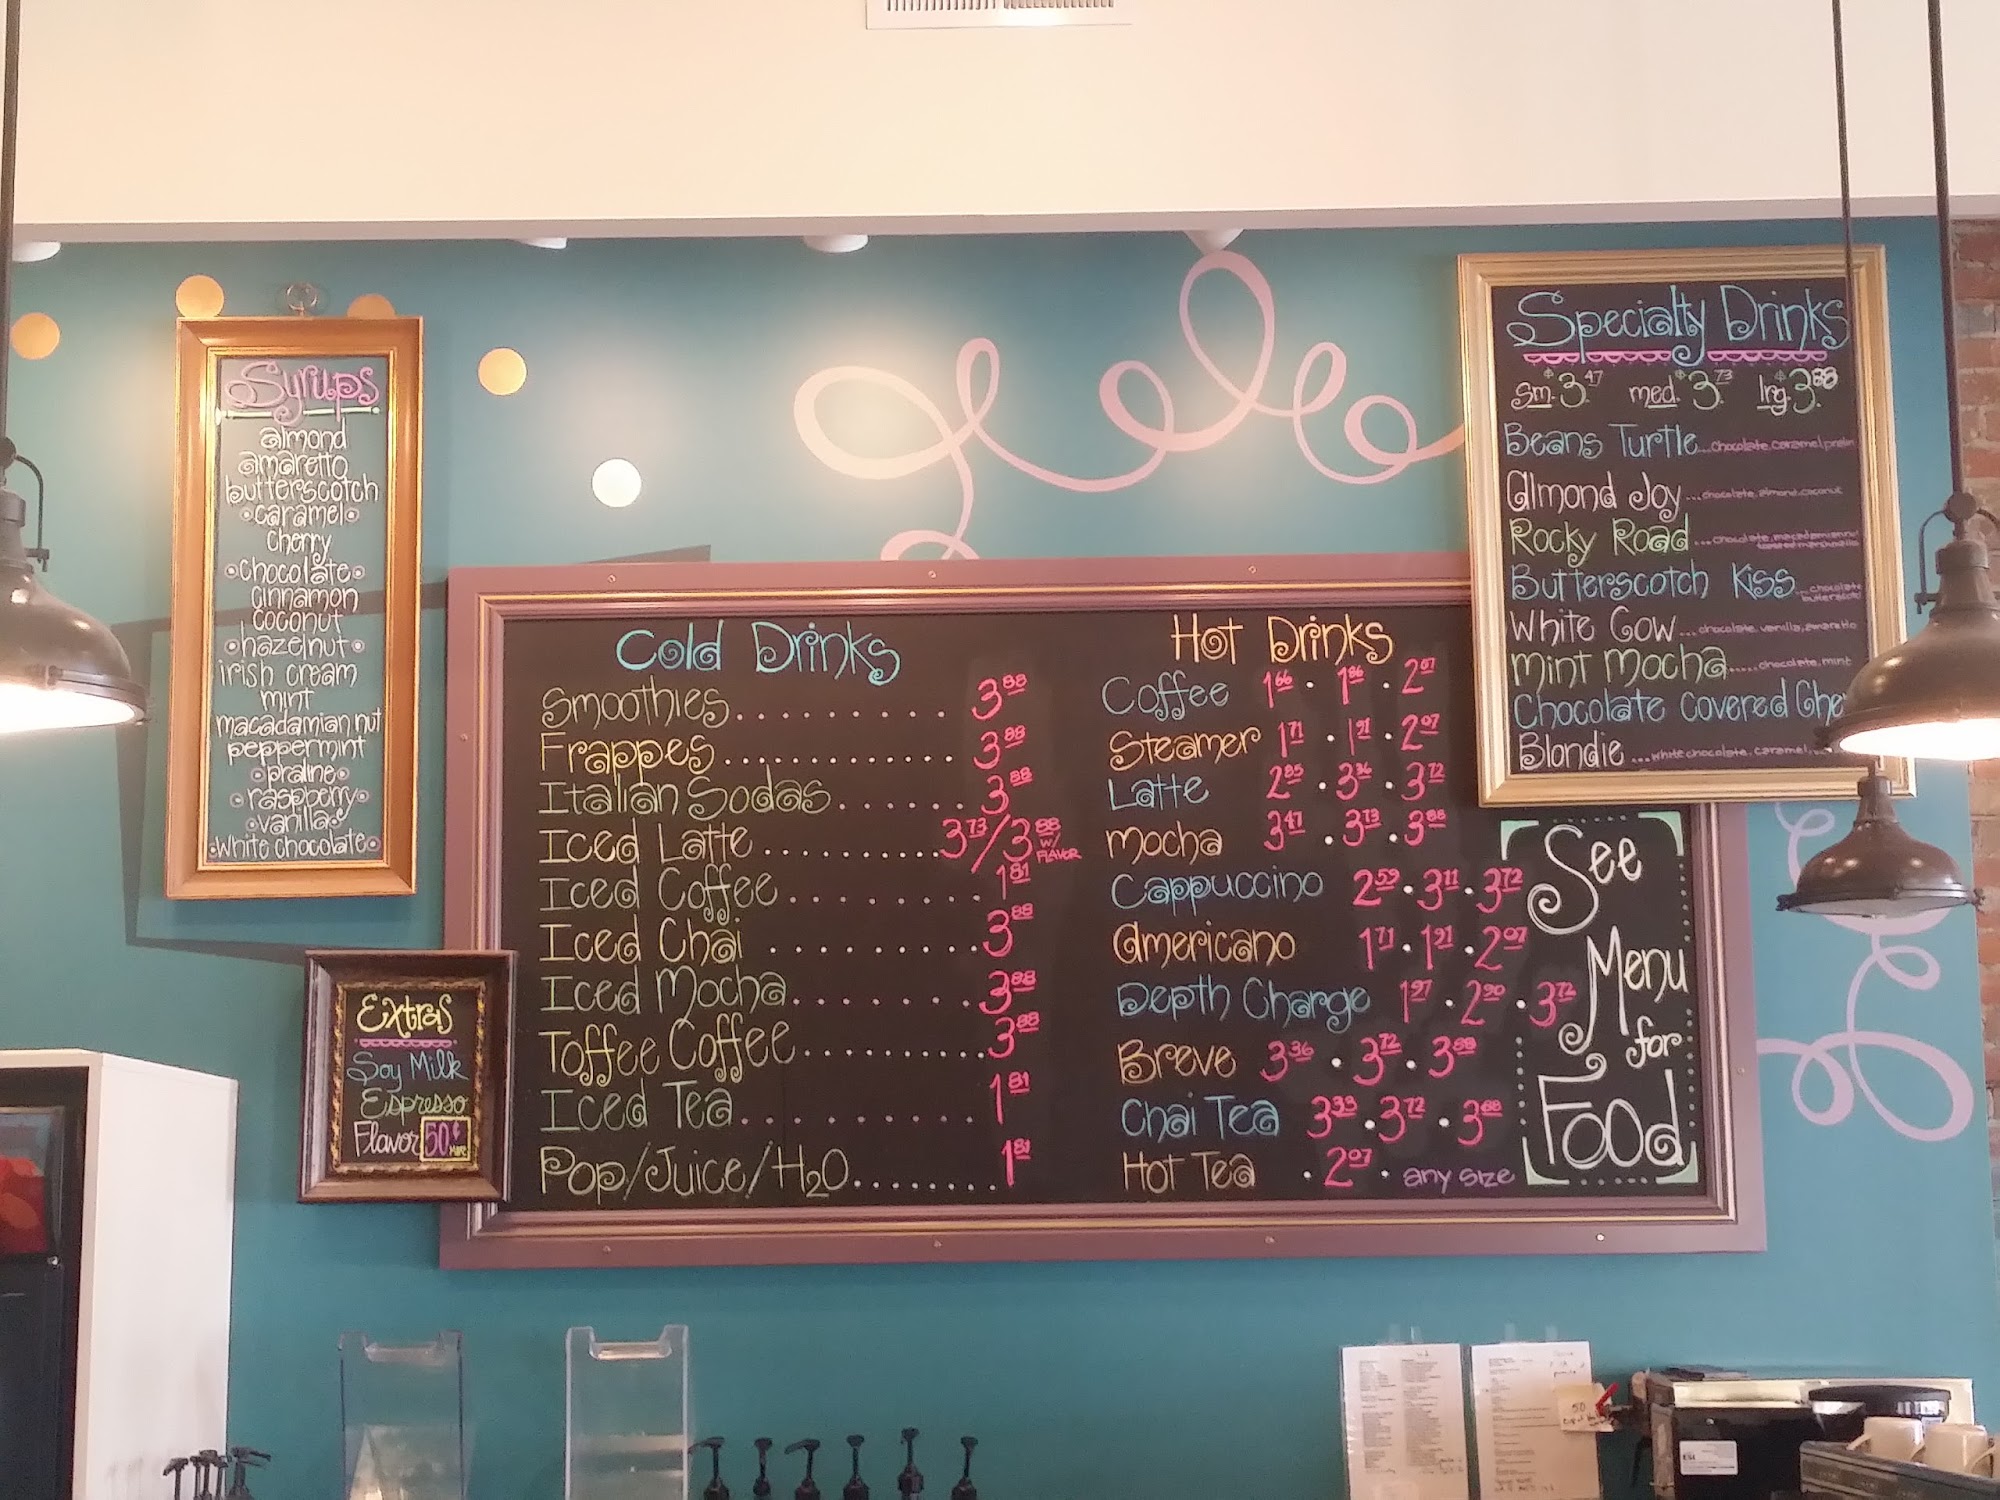 Syrups
almond
amaretto
butterscotch
caramel
cherry
chocolate
cinnamon
coconut
hazelnut
irish cream
mint
macadamian nut
peppermint
praline
raspberry
vanilla
white chocolate
Extras
Soy Milk
Espresso
Flavor 50¢ MORE
Cold Drinks
Smoothies.......... 3.88
Frappes............. 3.88
Italian Sodas....... 3.88
Iced Latte ..........3.73/3.88 w/ FLAVOR
Iced Coffee ......... 1.81
Iced Chai ..........3.88
Iced Mocha.......3.88
Toffee Coffee.........3.88
Iced Tea.......... 1.81
Pop/Juice/H2O........1.81
Hot Drinks
Coffee 1.66 • 1.86 • 2.07
Steamer 1.71 • 1.91 • 2.07
Latte 2.85 • 3.36 • 3.72
Mocha 3.47 • 3.73 • 3.88
Cappuccino 2.59 • 3.11 • 3.72
Americano 1.71 • 1.91 • 2.07
Depth Charge 1.97 • 2.90 • 3.72
Breve 3.36 • 3.72 • 3.88
Chai Tea 3.33 • 3.72 • 3.88
Hot Tea • 2.07 • any size
See
Menu
for
Food
Specialty Drinks
sm. $3.47 med. $3.73 lrg. $3.88
Beans Turtle...chocolate, caramel, pralin
Almond Joy ...chocolate, almond, coconut
Rocky Road ...chocolate, macadamian nut
toasted marshmallo
Butterscotch Kiss...chocolate
butterscotch
White Cow ...chocolate, vanilla, amaretto
Mint Mocha.....chocolate, mint
Chocolate Covered Che
Blondie ...white chocolate, caramel,